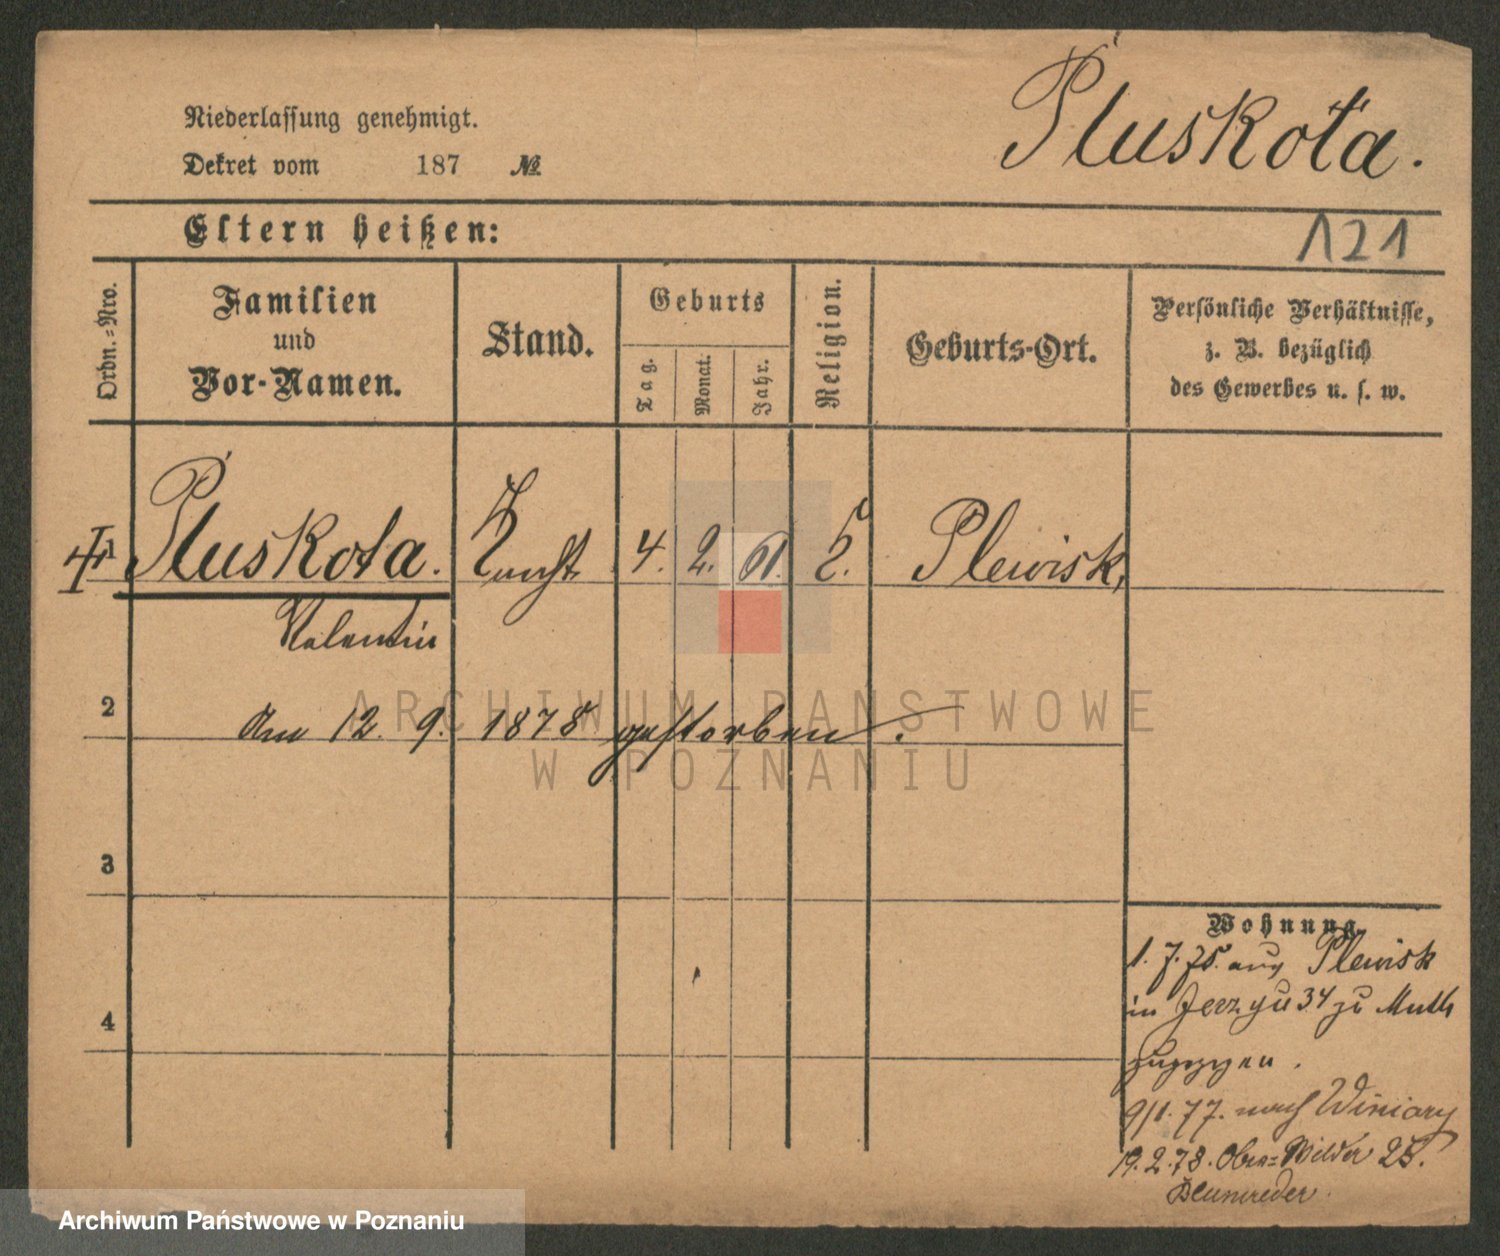 Pluskota.
Niederlassung genehmigt.
Dekret vom 187 №
Eltern heißen:
121
Ordn.=Nro.
Familien
und
Vor-Namen.
Stand.
Geburts
Tag.
Monat.
Jahr.
Religion.
Geburts-Ort.
Persönliche Verhältnisse,
z. B. bezüglich
des Gewerbes u. s. w.
1 Pluskota. Knecht 4. 2. 61. Plewisk,
Valentin
2
Am 12. 9. 1878 gestorben.
3
4
Wohnung
1. 7. 75. aus Plewisk
in Jerzyce 34 zu Muth
zugezogen.
9/1. 77. nach Winiary
19. 2. 78. Ober=Wilda 25.
Blumreder.
ARCHIWUM PAŃSTWOWE
W POZNANIU
Archiwum Państwowe w Poznaniu